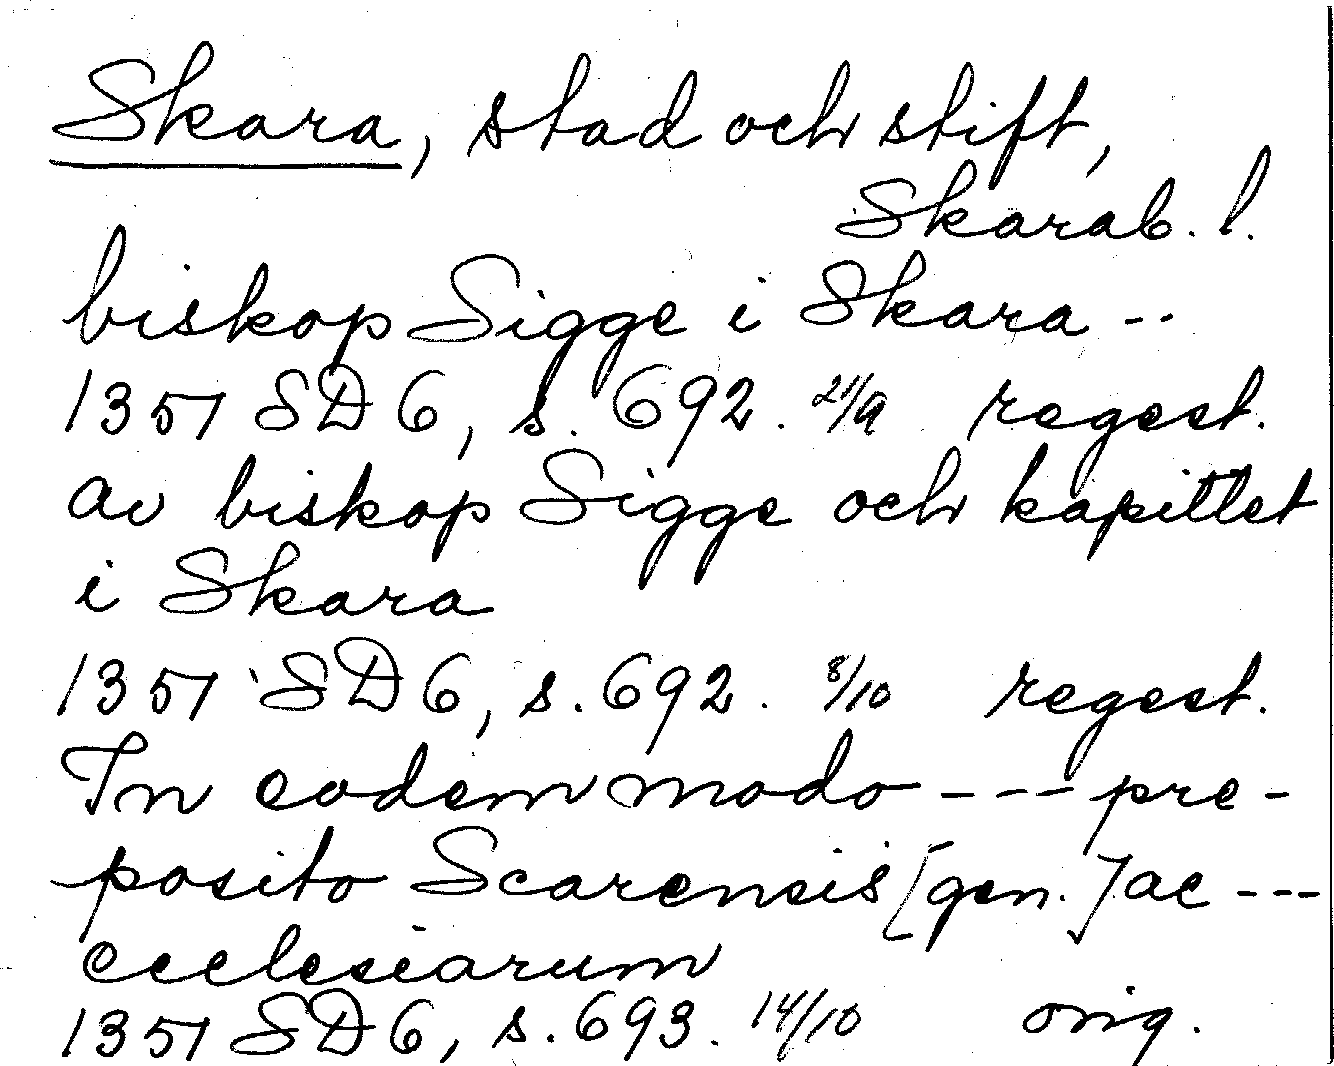 Skara, stad och stift,
Skarab. l.
biskop Sigge i Skara --
1351 SD 6, s. 692. 21/9 regest.
av biskop Sigge och kapitlet
i Skara
1351 SD 6, s. 692. 8/10 regest.
In eodem modo --- pre-
posito Scarensis [gen.] ac ---
ecclesiarum
1351 SD 6, s. 693. 14/10 orig.